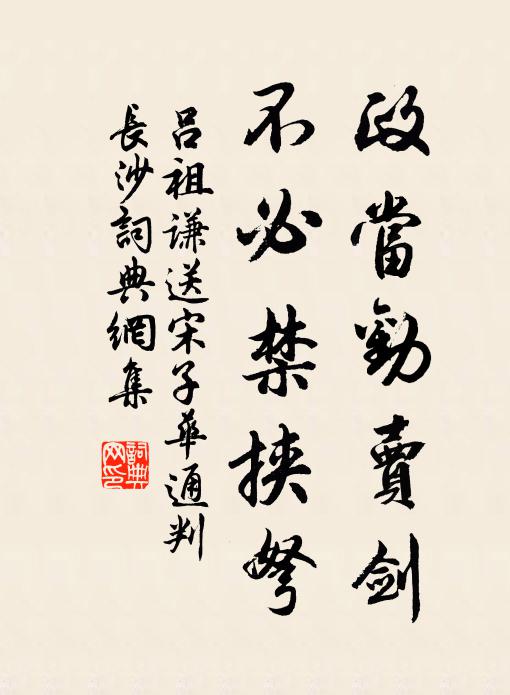 政當勸賣劍
不必禁挾弩
呂祖謙送宋子華通判
長沙詞典網集
詞典網印